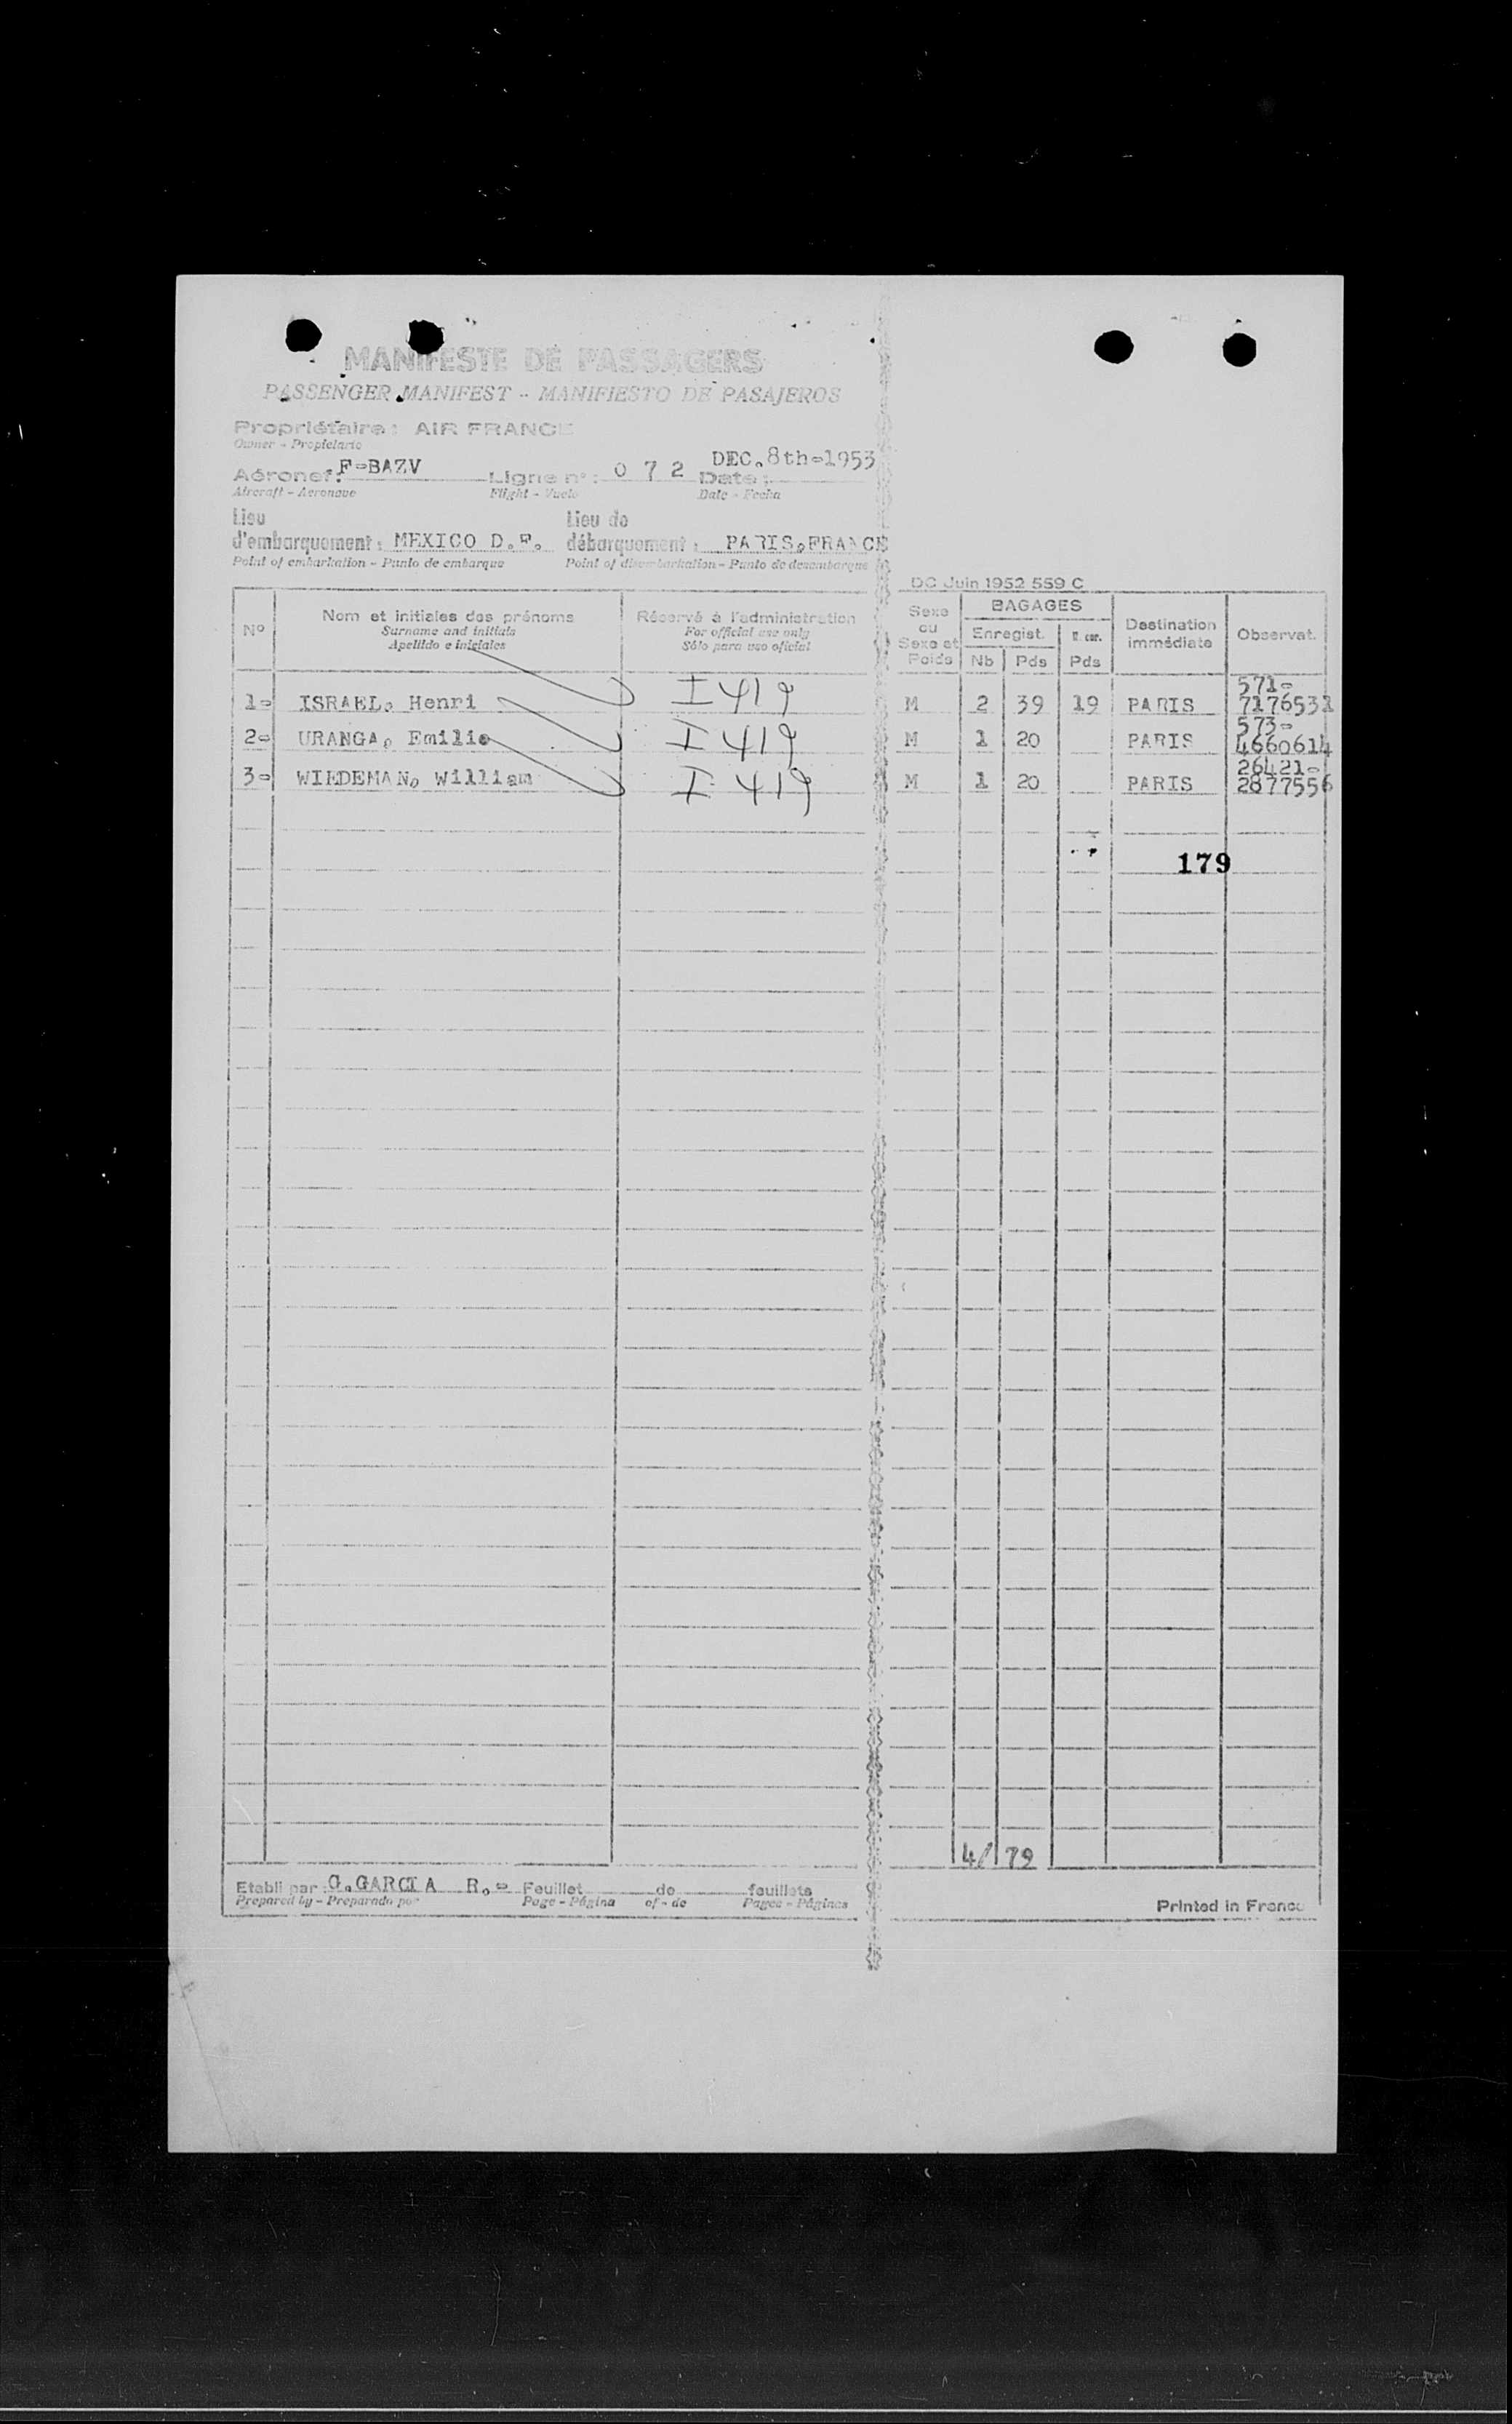 MANIFESTE DE PASSAGERS
PASSENGER MANIFEST - MANIFIESTO DE PASAJEROS
Propriétaire : AIR FRANCE
Owner - Propietario
Aéronef : F-BAZV Ligne n° : 0 7 2 Date : DEC. 8th-1953
Aircraft - Aeronave Flight - Vuelo Date - Fecha
Lieu d'embarquement : MEXICO D.F. Lieu de débarquement : PARIS, FRANCE
Point of embarkation - Punto de embarque Point of disembarkation - Punto de desembarque
DC Juin 1952 559 C
N° Nom et initiales des prénoms Réservé à l'administration Sexe ou Sexe et Poids BAGAGES Destination immédiate Observat.
Surname and initials For official use only Enregist.
Apellido e iniciales Sólo para uso oficial Nb Pds Pds
1- ISRAEL, Henri I 419 M 2 39 19 PARIS 571-7176531
2- URANGA, Emilio I 419 M 1 20 PARIS 573-4660614
3- WIEDEMAN, William I 419 M 1 20 PARIS 26421-2877556
179
4/ 79
Etabli par : G. GARCIA R.- Feuillet de feuillets
Prepared by - Preparado por Page - Página of - de Pages - Páginas
Printed in France